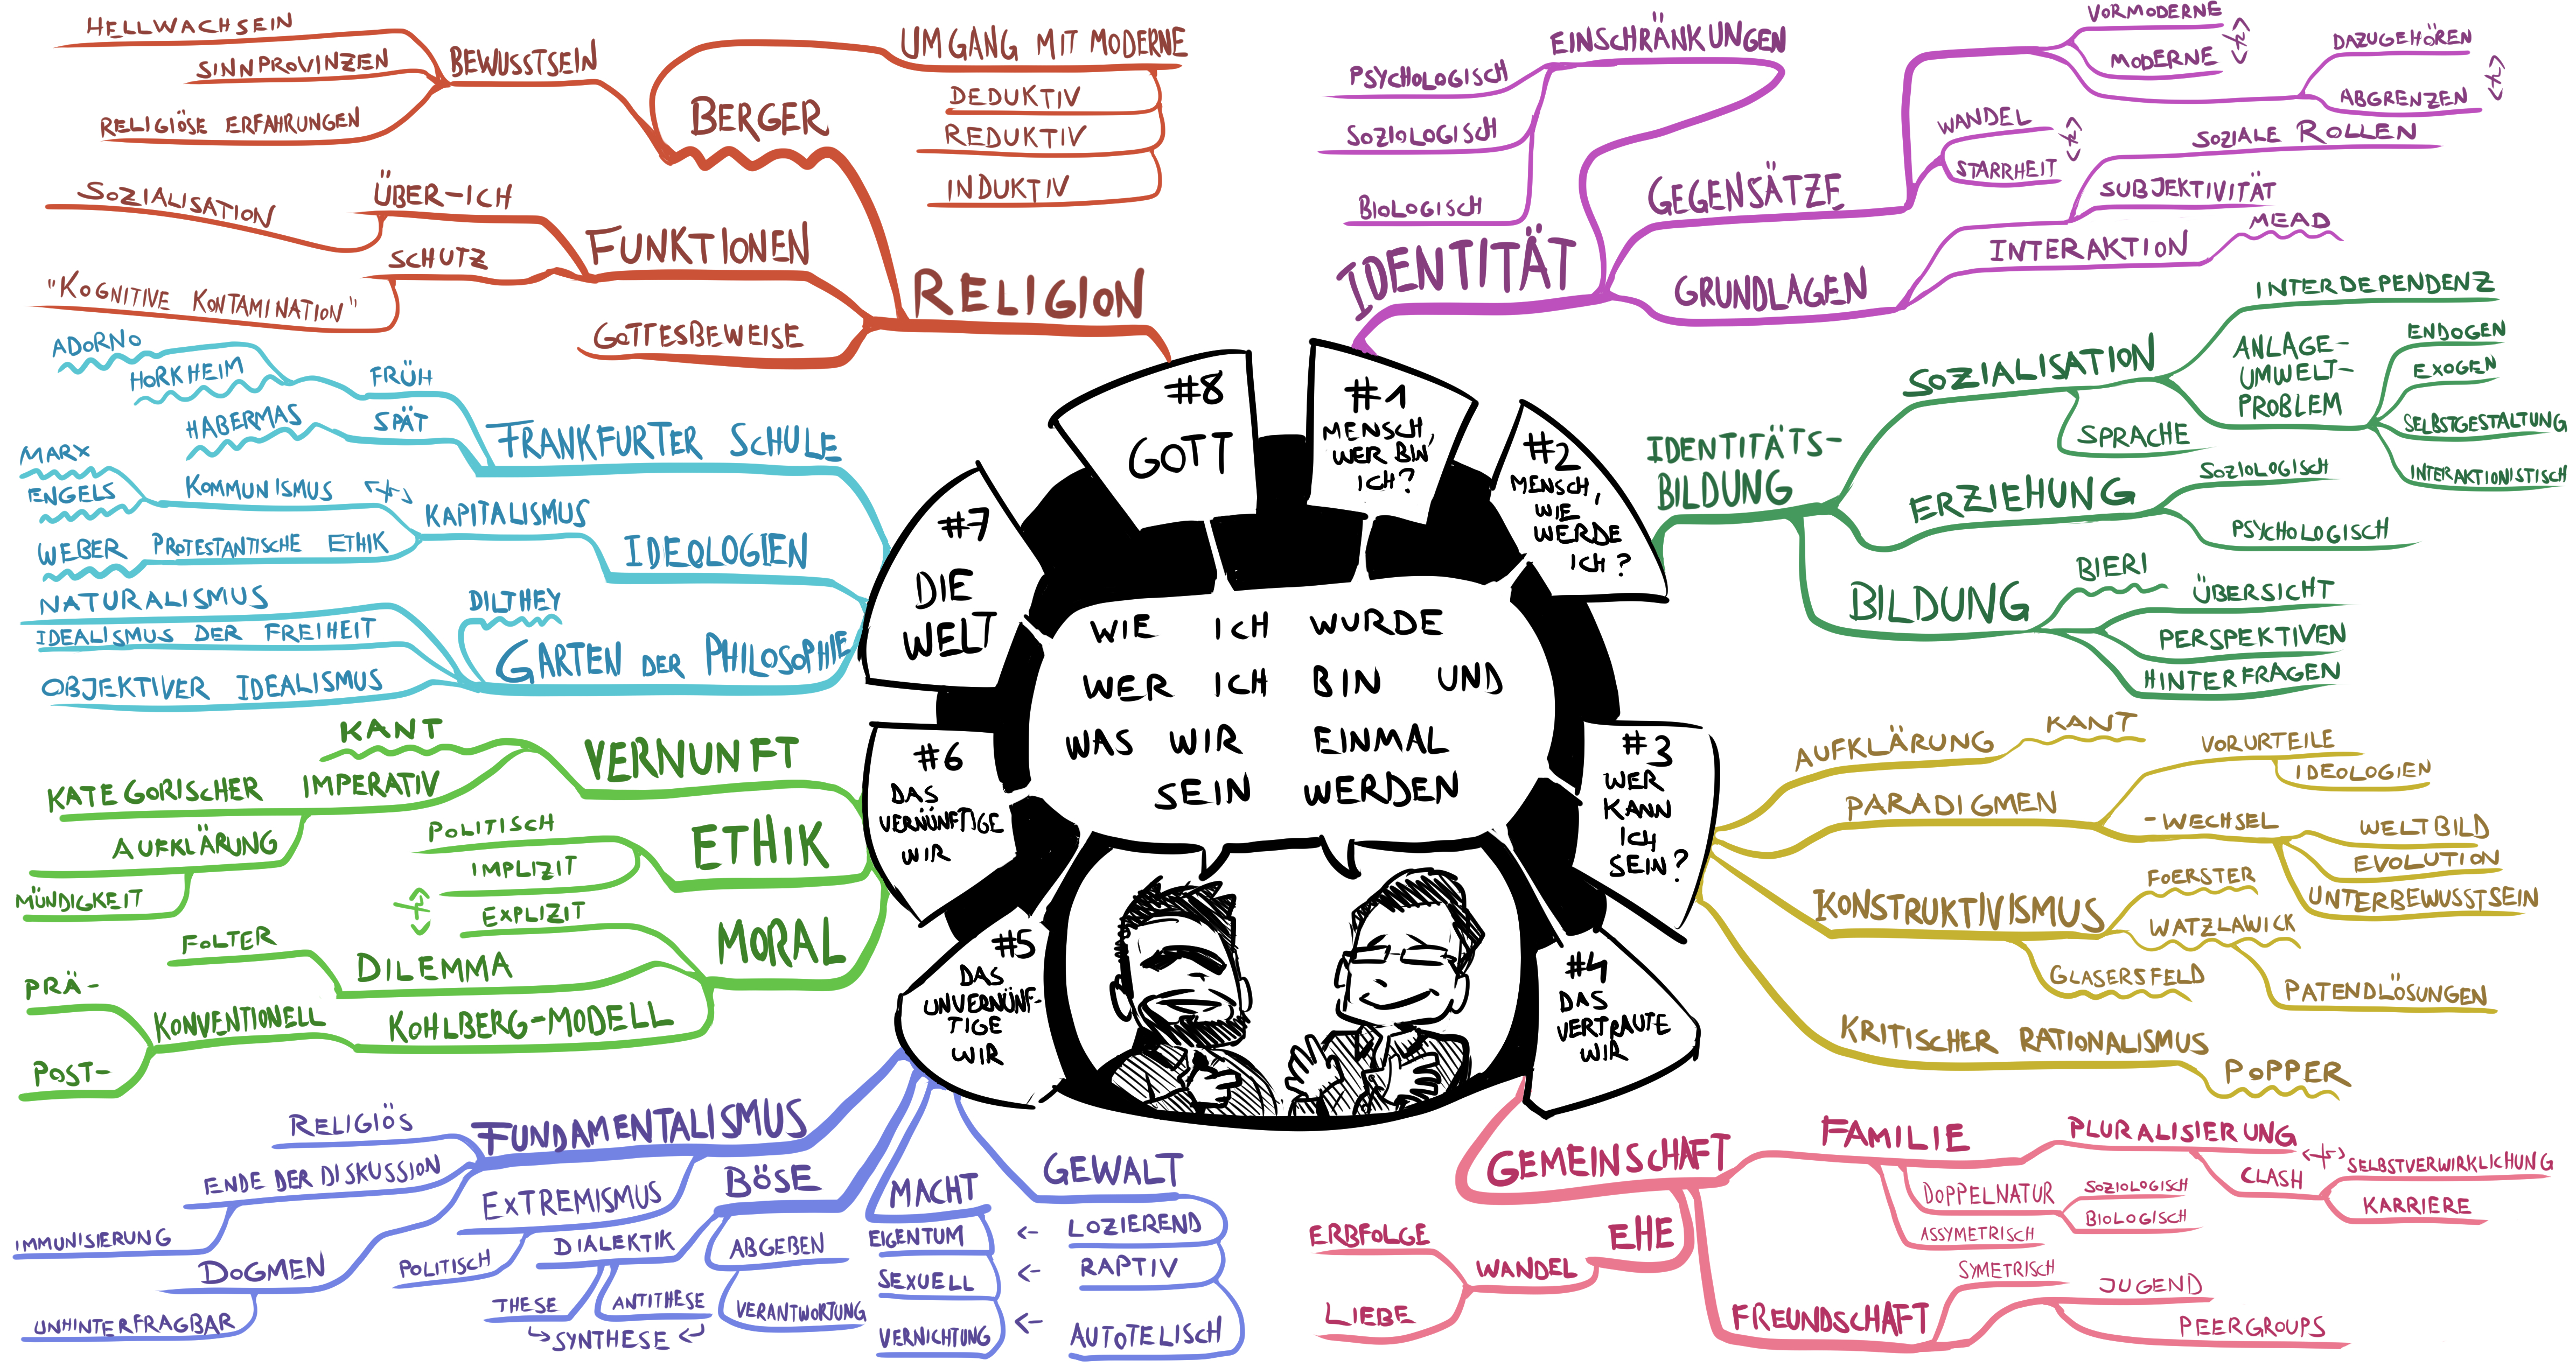 WIE ICH WURDE
WER ICH BIN UND
WAS WIR EINMAL
SEIN WERDEN
#1
MENSCH,
WER BIN
ICH?
IDENTITÄT
EINSCHRÄNKUNGEN
PSYCHOLOGISCH
SOZIOLOGISCH
BIOLOGISCH
GEGENSÄTZE
VORMODERNE
MODERNE
DAZUGEHÖREN
ABGRENZEN
WANDEL
STARRHEIT
GRUNDLAGEN
SOZIALE ROLLEN
SUBJEKTIVITÄT
INTERAKTION
MEAD
#2
MENSCH,
WIE
WERDE
ICH?
IDENTITÄTS-
BILDUNG
SOZIALISATION
INTERDEPENDENZ
ANLAGE-
UMWELT-
PROBLEM
ENDOGEN
EXOGEN
SELBSTGESTALTUNG
INTERAKTIONISTISCH
SPRACHE
ERZIEHUNG
SOZIOLOGISCH
PSYCHOLOGISCH
BILDUNG
BIERI
ÜBERSICHT
PERSPEKTIVEN
HINTERFRAGEN
#3
WER
KANN
ICH
SEIN?
AUFKLÄRUNG
KANT
PARADIGMEN
VORURTEILE
IDEOLOGIEN
-WECHSEL
WELTBILD
EVOLUTION
UNTERBEWUSSTSEIN
KONSTRUKTIVISMUS
FOERSTER
WATZLAWICK
GLASERSFELD
PATENDLÖSUNGEN
KRITISCHER RATIONALISMUS
POPPER
#4
DAS
VERTRAUTE
WIR
GEMEINSCHAFT
FAMILIE
PLURALISIERUNG
CLASH
SELBSTVERWIRKLICHUNG
KARRIERE
DOPPELNATUR
SOZIOLOGISCH
BIOLOGISCH
ASSYMETRISCH
EHE
WANDEL
ERBFOLGE
LIEBE
FREUNDSCHAFT
SYMETRISCH
JUGEND
PEERGROUPS
#5
DAS
UNVERNÜNF-
TIGE
WIR
FUNDAMENTALISMUS
RELIGIÖS
ENDE DER DISKUSSION
IMMUNISIERUNG
DOGMEN
UNHINTERFRAGBAR
EXTREMISMUS
POLITISCH
BÖSE
DIALEKTIK
THESE
ANTITHESE
SYNTHESE
ABGEBEN
VERANTWORTUNG
MACHT
EIGENTUM
SEXUELL
VERNICHTUNG
GEWALT
← LOZIEREND
← RAPTIV
← AUTOTELISCH
#6
DAS
VERNÜNFTIGE
WIR
VERNUNFT
KANT
KATEGORISCHER IMPERATIV
AUFKLÄRUNG
MÜNDIGKEIT
ETHIK
POLITISCH
IMPLIZIT
EXPLIZIT
MORAL
DILEMMA
FOLTER
KOHLBERG-MODELL
KONVENTIONELL
PRÄ-
POST-
#7
DIE
WELT
FRANKFURTER SCHULE
FRÜH
ADORNO
HORKHEIM
SPÄT
HABERMAS
IDEOLOGIEN
KAPITALISMUS
KOMMUNISMUS
MARX
ENGELS
PROTESTANTISCHE ETHIK
WEBER
GARTEN DER PHILOSOPHIE
DILTHEY
NATURALISMUS
IDEALISMUS DER FREIHEIT
OBJEKTIVER IDEALISMUS
#8
GOTT
RELIGION
BERGER
UMGANG MIT MODERNE
DEDUKTIV
REDUKTIV
INDUKTIV
BEWUSSTSEIN
HELLWACHSEIN
SINNPROVINZEN
RELIGIÖSE ERFAHRUNGEN
FUNKTIONEN
ÜBER-ICH
SOZIALISATION
SCHUTZ
"KOGNITIVE KONTAMINATION"
GOTTESBEWEISE